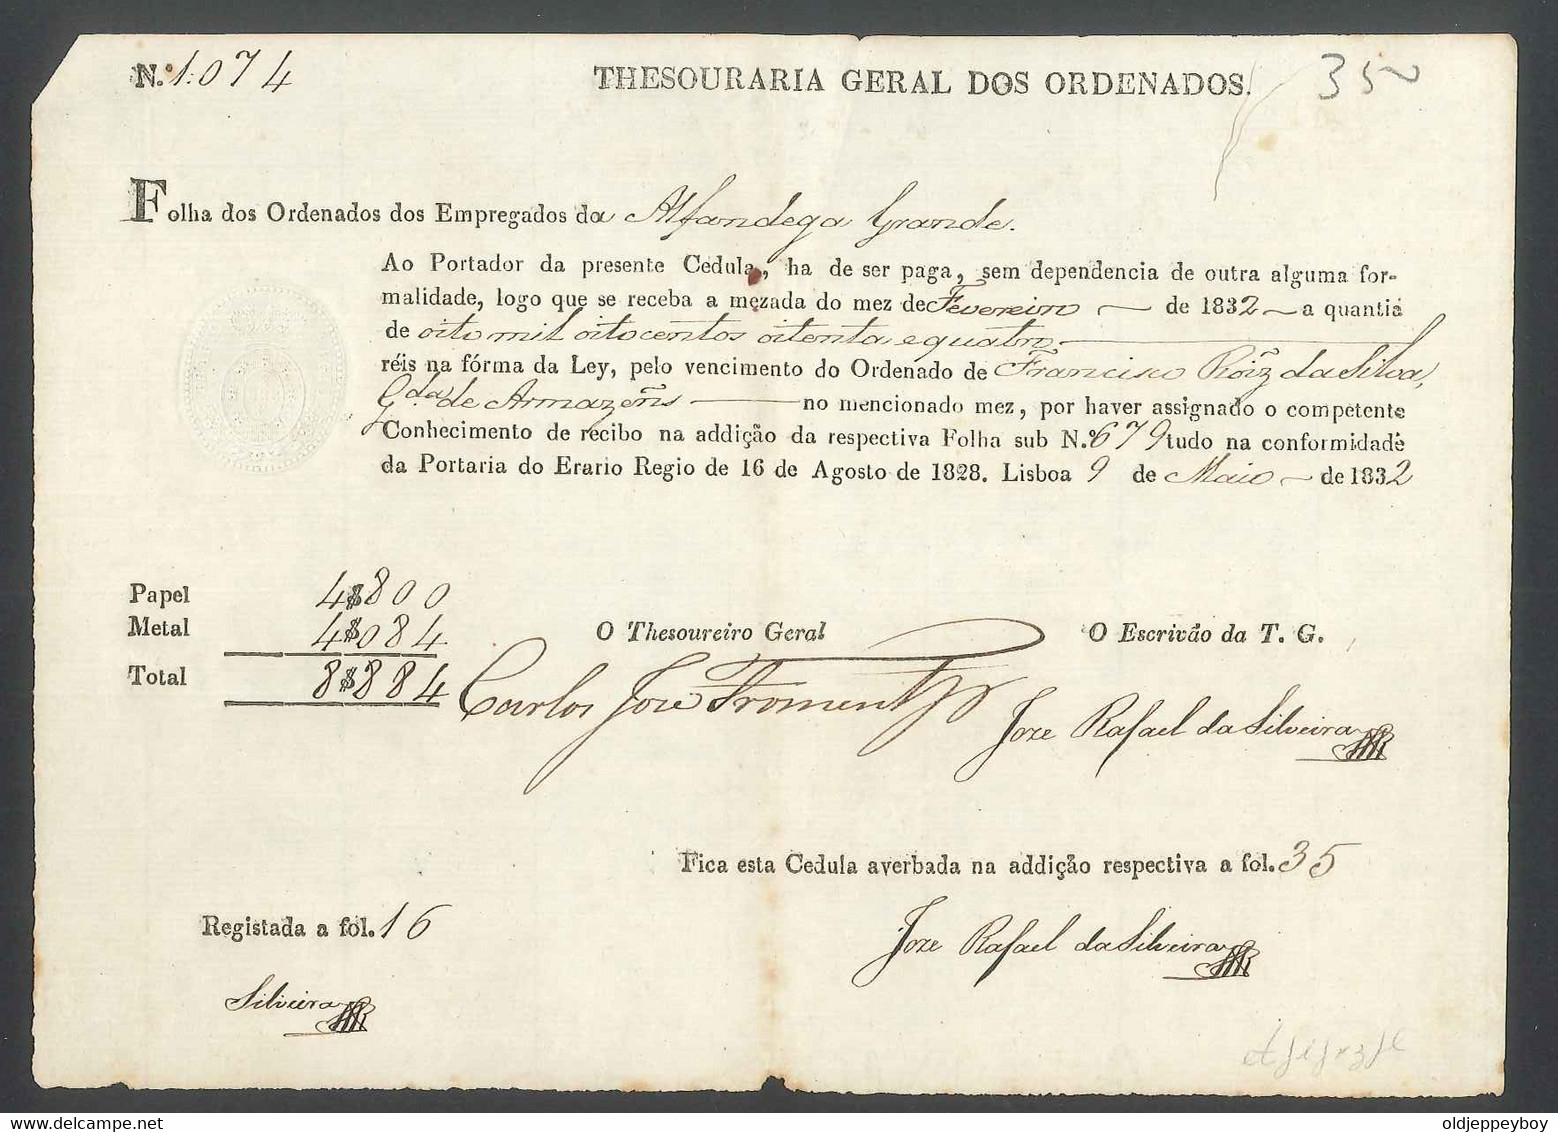 N.º 1:074
THESOURARIA GERAL DOS ORDENADOS.
35
Folha dos Ordenados dos Empregados da Alfandega Grande.
Ao Portador da presente Cedula, ha de ser paga, sem dependencia de outra alguma for-
malidade, logo que se receba a mezada do mez de Fevereiro — de 1832 — a quantia
de oito mil oitocentos oitenta e quatro
réis na fórma da Ley, pelo vencimento do Ordenado de Francisco Roiz da Silva,
Gda. de Armazens — no mencionado mez, por haver assignado o competente
Conhecimento de recibo na addição da respectiva Folha sub N.º 679 tudo na conformidade
da Portaria do Erario Regio de 16 de Agosto de 1828. Lisboa 9 de Maio — de 1832
Papel 4$800
Metal 4$084
Total 8$884
O Thesoureiro Geral
Carlos José Froment
O Escrivão da T. G.
Joze Rafael da Silveira
Fica esta Cedula averbada na addição respectiva a fol. 35
Joze Rafael da Silveira
Registada a fol. 16
Silveira
oldjeppeyboy